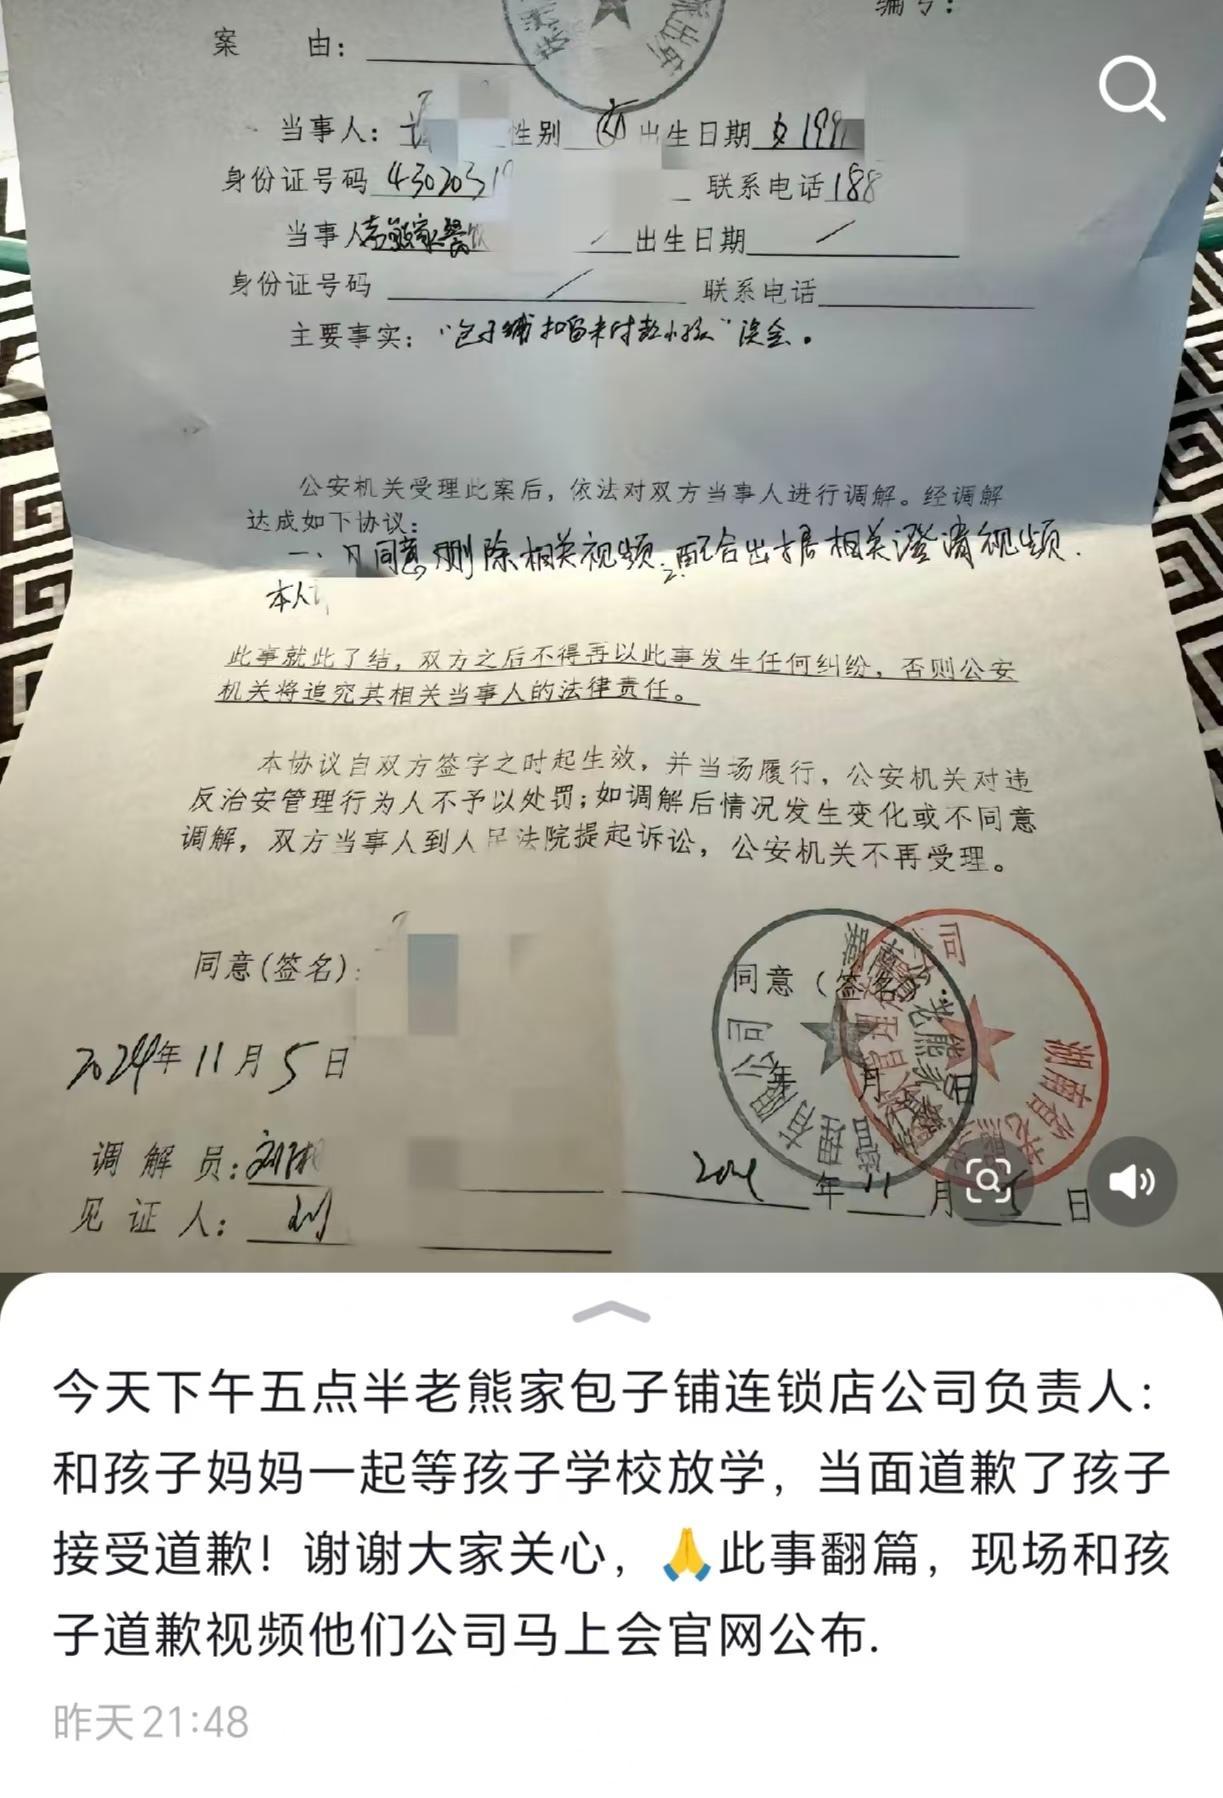 编号：
案 由：
当事人： 性别 出生日期 女 199
身份证号码 4302031 联系电话 188
当事人 老熊家餐饮 / 出生日期 /
身份证号码 / 联系电话
主要事实：“包子铺扣留未付款小孩”误会。
公安机关受理此案后，依法对双方当事人进行调解。经调解
达成如下协议：
一、 同意删除相关视频，2.配合出据相关澄清视频.
本人
此事就此了结，双方之后不得再以此事发生任何纠纷，否则公安
机关将追究其相关当事人的法律责任。
本协议自双方签字之时起生效，并当场履行，公安机关对违
反治安管理行为人不予以处罚；如调解后情况发生变化或不同意
调解，双方当事人到人民法院提起诉讼，公安机关不再受理。
同意（签名）： 同意（签名）：
2024年11月5日 年 月 日
调解员：刘湘
见证人：刘 年11月 日
今天下午五点半老熊家包子铺连锁店公司负责人：
和孩子妈妈一起等孩子学校放学，当面道歉了孩子
接受道歉！谢谢大家关心，🙏此事翻篇，现场和孩
子道歉视频他们公司马上会官网公布.
昨天21:48